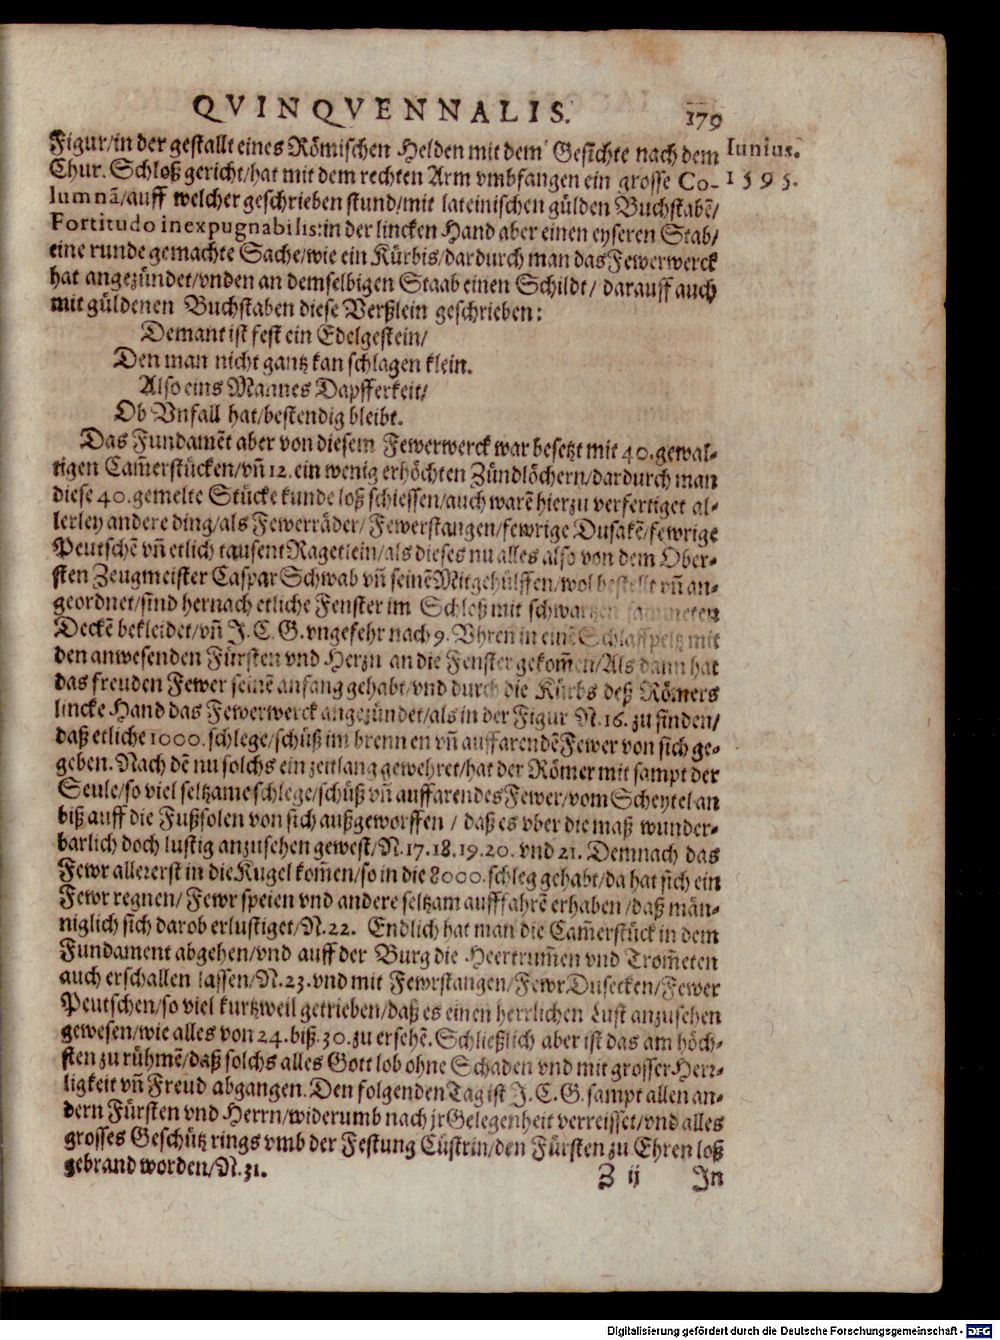 QVINQVENNALIS. 179
Figur/in der gestallt eines Römischen Helden mit dem Gesichte nach dem
Iunius.
Chur. Schloß gericht/hat mit dem rechten Arm vmbfangen ein grosse Co-
1595.
lumnā/auff welcher geschrieben stund/mit lateinischen gülden Buchstabē/
Fortitudo inexpugnabilis: in der lincken Hand aber einen eyseren Stab/
eine runde gemachte Sache/wie ein Kürbis/dardurch man das Fewerwerck
hat angezündet/vnden an demselbigen Staab einen Schildt/ darauff auch
mit güldenen Buchstaben diese Verßlein geschrieben:
Demant ist fest ein Edelgestein/
Den man nicht gantz kan schlagen klein.
Also eins Mannes Dapfferkeit/
Ob Vnfall hat/bestendig bleibt.
Das Fundamēt aber von diesem Fewerwerck war besetzt mit 40. gewal-
tigen Cam̄erstücken/vn̄ 12. ein wenig erhöchten Zündlöchern/dardurch man
diese 40. gemelte Stücke kunde loß schiessen/auch warē hierzu verfertiget al-
lerley andere ding/als Fewerräder/ Fewerstangen/fewrige Dusakē/fewrige
Peutschē vn̄ etlich tausent Ragetlein/als dieses nu alles also von dem Ober-
sten Zeugmeister Caspar Schwab vn̄ seinē Mitgehülffen/wol bestellt vn̄ an-
geordnet/sind hernach etliche Fenster im Schloß mit schwartzen sammeten
Deckē bekleidet/vn̄ J. C. G. vngefehr nach 9. Vhren in einē Schlaffpeltz mit
den anwesenden Fürsten vnd Herzn an die Fenster gekom̄en/Als dann hat
das freuden Fewer seinē anfang gehabt/vnd durch die Kürbs deß Römers
lincke Hand das Fewerwerck angezündet/als in der Figur N. 16. zu finden/
daß etliche 1000. schlege/schüß im brennen vn̄ auffarendē Fewer von sich ge-
geben. Nach dē nu solchs ein zeitlang gewehret/hat der Römer mit sampt der
Seule/so viel seltzame schlege/schüß vn̄ auffarendes Fewer/vom Scheytel an
biß auff die Fußsolen von sich außgeworffen / daß es vber die maß wunder-
barlich doch lustig anzusehen gewest/N. 17. 18. 19. 20. vnd 21. Demnach das
Fewr allererst in die Kugel kom̄en/so in die 8000. schleg gehabt/da hat sich ein
Fewr regnen/ Fewr speien vnd andere seltzam aufffahrē erhaben /daß män-
niglich sich darob erlustiget/N. 22. Endlich hat man die Cam̄erstück in dem
Fundament abgehen/vnd auff der Burg die Heertrum̄en vnd Trom̄eten
auch erschallen lassen/N. 23. vnd mit Fewrstangen/Fewr Dusecken/Fewer
Peutschen/so viel kurtzweil getrieben/daß es einen herrlichen Lust anzusehen
gewesen/wie alles von 24. biß. 30. zu ersehē. Schließlich aber ist das am höch-
sten zu rühmē/daß solchs alles Gott lob ohne Schaden vnd mit grosser Herr-
ligkeit vn̄ Freud abgangen. Den folgenden Tag ist J. C. G. sampt allen an-
dern Fürsten vnd Herrn/widerumb nach jr Gelegenheit verreisset/vnd alles
grosses Geschütz rings vmb der Festung Cüstrin/den Fürsten zu Ehren loß
gebrand worden/N. 31.
Z ij In
Digitalisierung gefördert durch die Deutsche Forschungsgemeinschaft - DFG